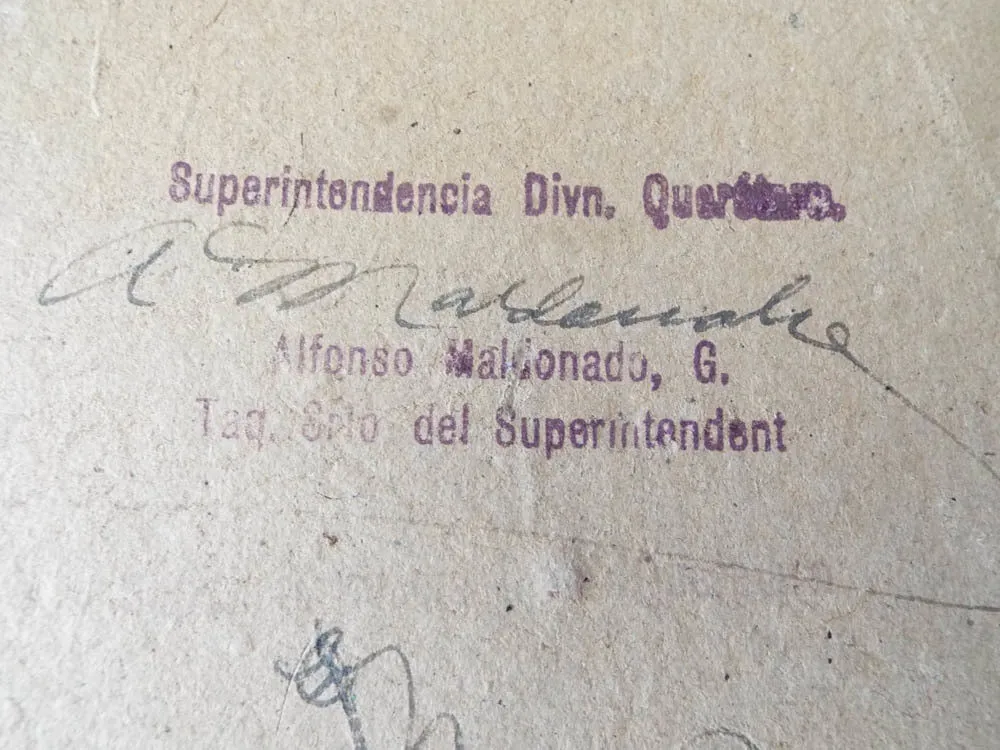 Superintendencia Divn. Querétaro.
A. Maldonado
Alfonso Maldonado, G.
Taq. Srio del Superintendent